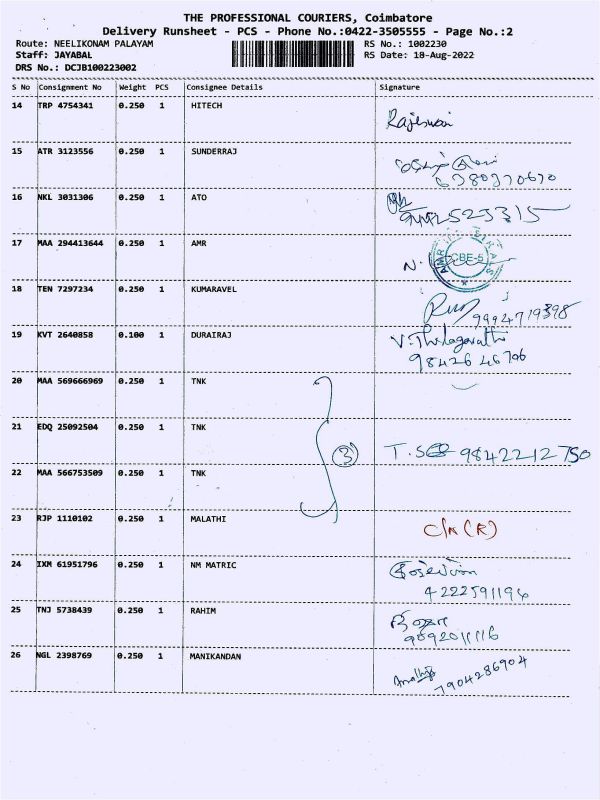 THE PROFESSIONAL COURIERS, Coimbatore
Delivery Runsheet - PCS - Phone No.:0422-3505555 - Page No.:2
Route: NEELIKONAM PALAYAM RS No.: 1002230
Staff: JAYABAL RS Date: 18-Aug-2022
DRS No.: DCJB100223002
S No Consignment No Weight PCS Consignee Details Signature
14 TRP 4754341 0.250 1 HITECH
15 ATR 3123556 0.250 1 SUNDERRAJ
16 NKL 3031306 0.250 1 ATO
17 MAA 294413644 0.250 1 AMR CBE-5
18 TEN 7297234 0.250 1 KUMARAVEL 9994719398
19 KVT 2640858 0.100 1 DURAIRAJ V.Thilagavathi
98426 46706
20 MAA 569666969 0.250 1 TNK
21 EDQ 25092504 0.250 1 TNK 3 9842212750
22 MAA 566753509 0.250 1 TNK
23 RJP 1110102 0.250 1 MALATHI C/N (R)
24 IXM 61951796 0.250 1 NM MATRIC
4222591196
25 TNJ 5738439 0.250 1 RAHIM
9092011116
26 NGL 2398769 0.250 1 MANIKANDAN
7904286904